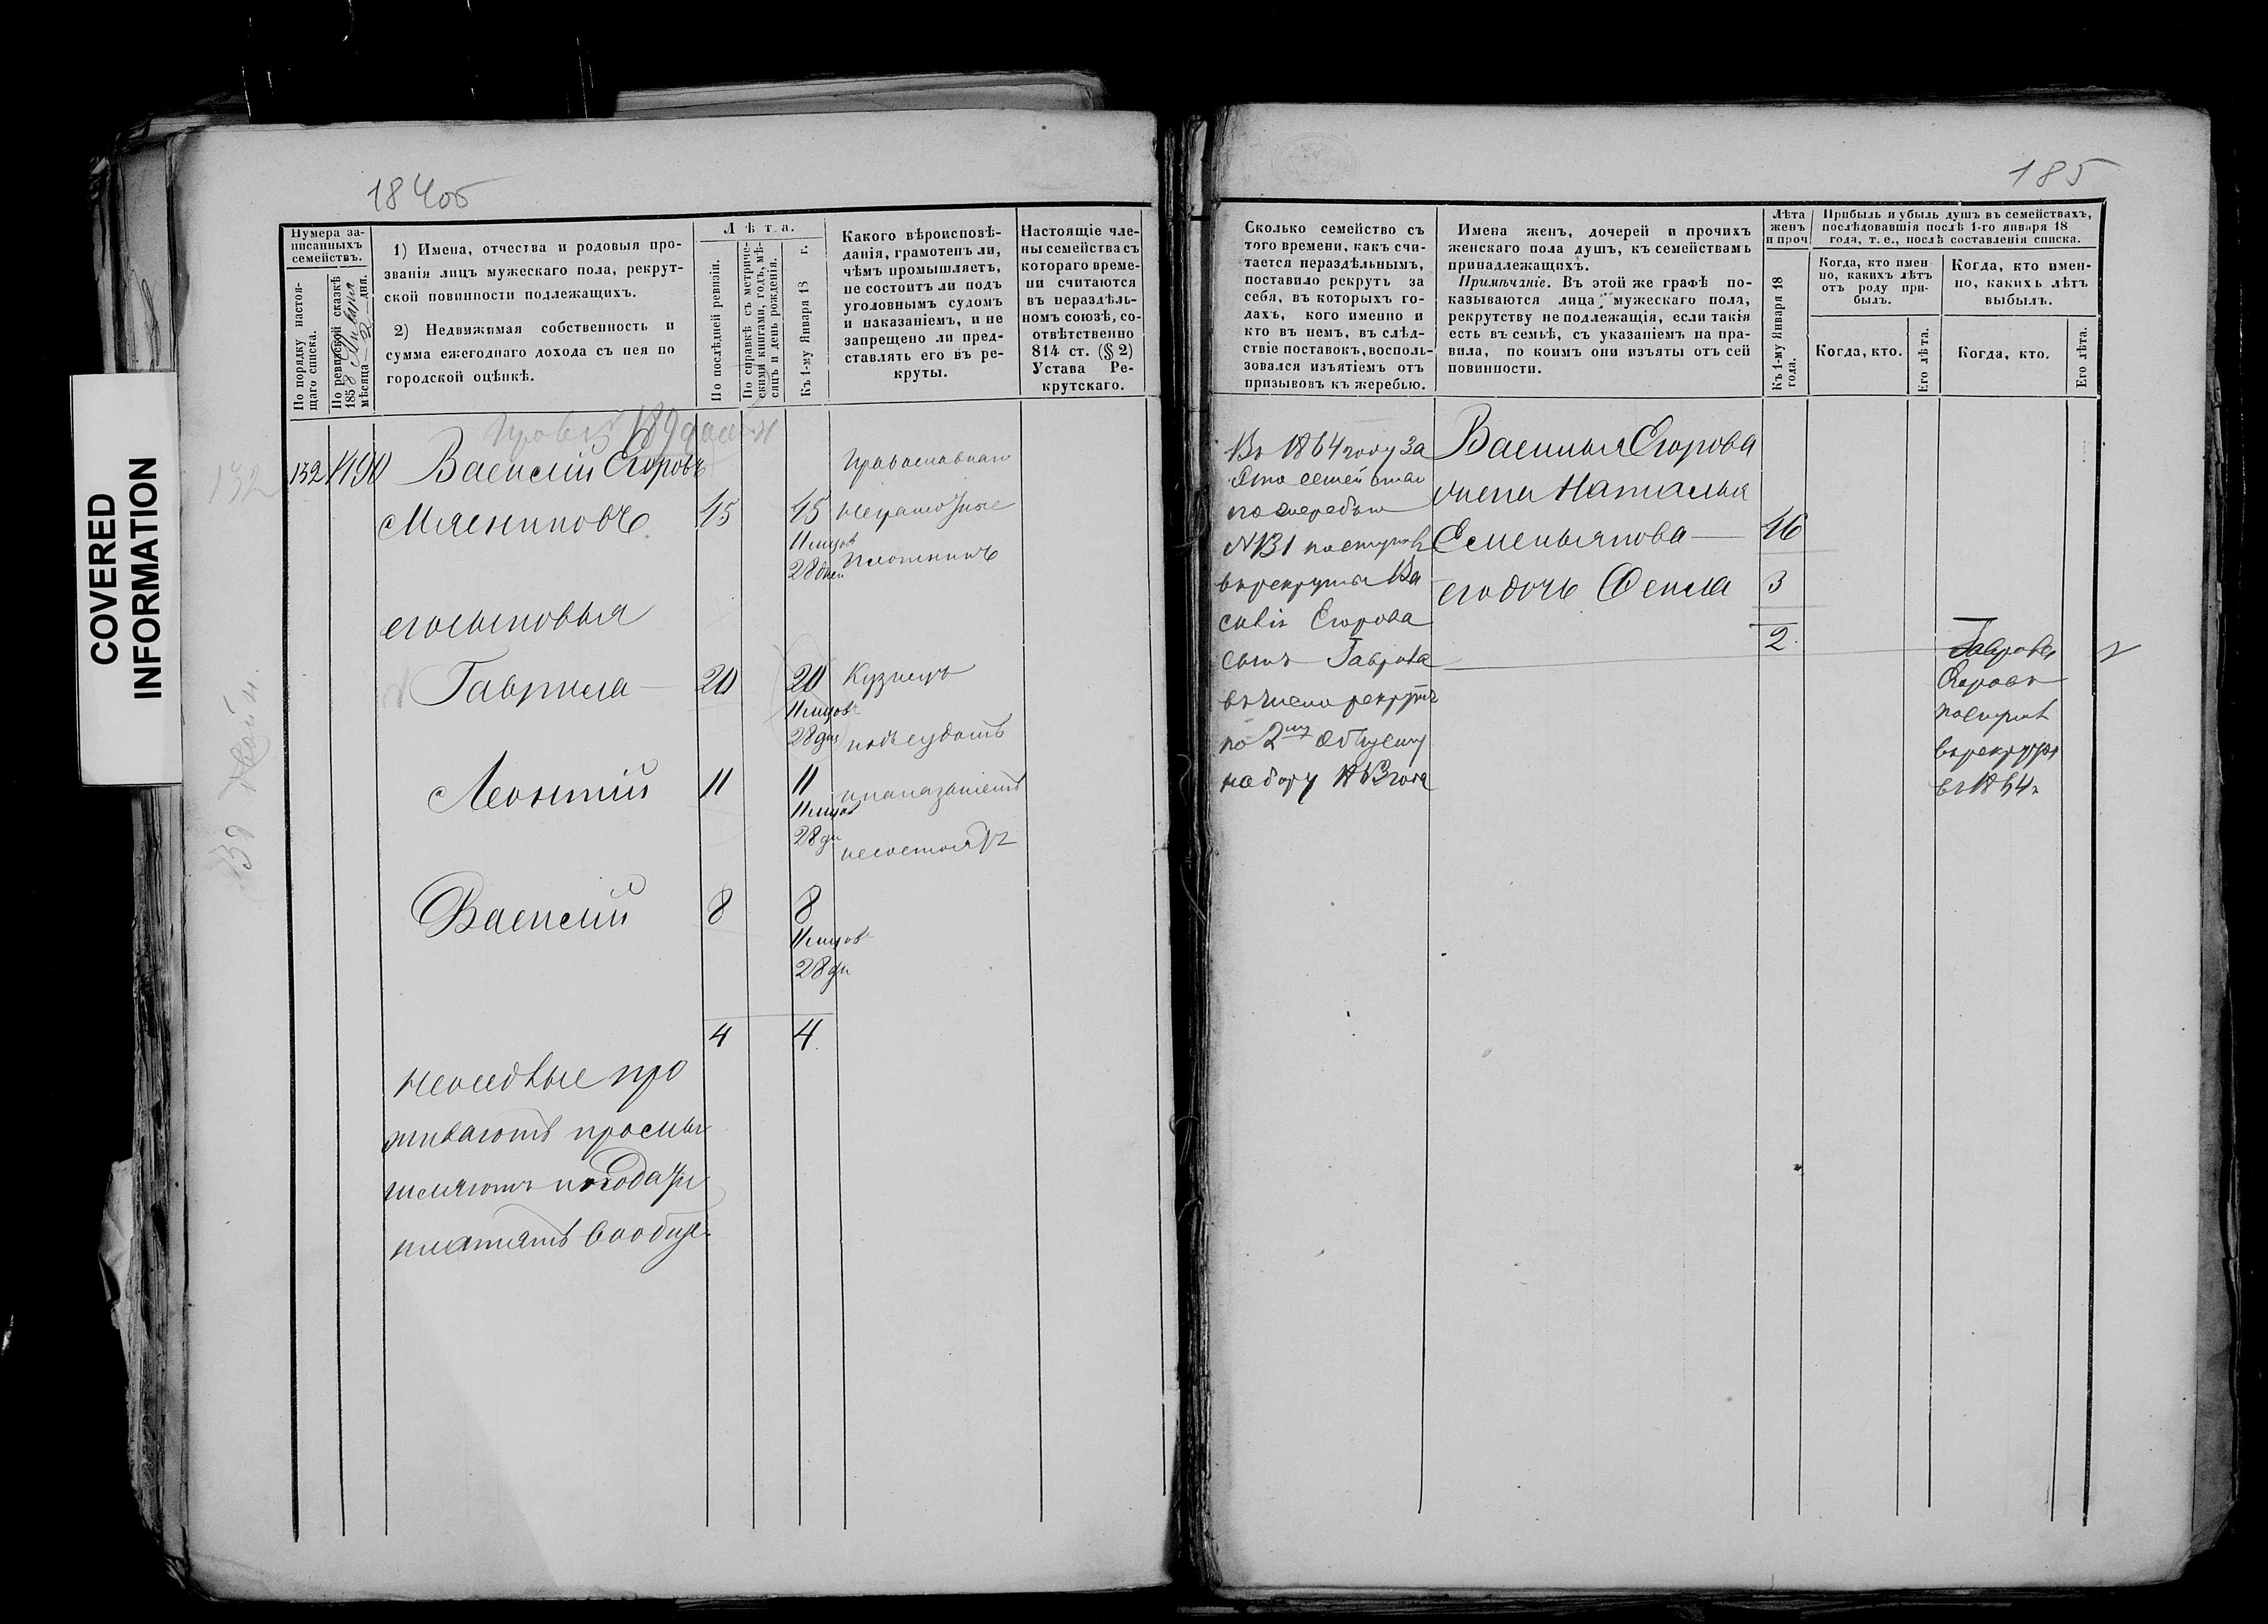 184об
Нумера за-
писанныхъ
семействъ.
По порядку настоя-
щаго списка.
По ревизской сказкѣ
1858 Января
мѣсяца 2 дня.
1) Имена, отчества и родовыя про-
званія лицъ мужескаго пола, рекрут-
ской повинности подлежащихъ.
2) Недвижимая собственность и
сумма ежегоднаго дохода съ нея по
городской оцѣнкѣ.
Лѣта.
По послѣдней ревизіи.
По справкѣ съ метриче-
скими книгами, годъ, мѣ-
сяцъ и день рожденія.
Къ 1-му Января 18 г.
Какого вѣроисповѣ-
данія, грамотенъ ли,
чѣмъ промышляетъ,
не состоитъ ли подъ
уголовнымъ судомъ
и наказаніемъ, и не
запрещено ли пред-
ставлять его въ ре-
круты.
Настоящіе чле-
ны семейства съ
котораго време-
ни считаются
въ нераздѣль-
номъ союзѣ, со-
отвѣтственно
814 ст. (§ 2)
Устава Ре-
крутскаго.
132
132 1490 Василій Егоровъ
Мясниковъ 45 45
11 мцов
28 дней
Православнаго
неграмотные
Плотникъ
его сыновья
Гаврила 20 20
11 мцовъ
28 дн
Кузнецъ
подъ судомъ
Леонтій 11 11
11 мцов
28 дн
и наказаніемъ
несостоятъ
Василій 8 8
11 мцовъ
28 дн
4 4
неоседлые про
живаютъ промы
шляютъ и подати
платятъ вообще
COVERED
INFORMATION
185
Сколько семейство съ
того времени, какъ счи-
тается нераздѣльнымъ,
поставило рекрутъ за
себя, въ которыхъ го-
дахъ, кого именно и
кто въ немъ, въ слѣд-
ствіе поставокъ, восполь-
зовался изъятіемъ отъ
призывовъ къ жеребью.
Имена женъ, дочерей и прочихъ
женскаго пола душъ, къ семействамъ
принадлежащихъ.
Примѣчаніе. Въ этой же графѣ по-
казываются лица мужескаго пола,
рекрутству не подлежащія, если такія
есть въ семьѣ, съ указаніемъ на пра-
вила, по коимъ они изъяты отъ сей
повинности.
Лѣта
женъ
и проч.
Къ 1-му Января 18
года.
Прибыль и убыль душъ въ семействахъ,
послѣдовавшія послѣ 1-го января 18
года, т. е., послѣ составленія списка.
Когда, кто имен-
но, какихъ лѣтъ
отъ роду при-
былъ.
Когда, кто имен-
но, какихъ лѣтъ
выбылъ.
Когда, кто.
Его лѣта.
Когда, кто.
Его лѣта.
Въ 1864 году за
по очереди
№ 131 поступилъ
въ рекруты Ва
силія Егорова
сынъ Гаврила
въ число рекрутъ
по 2му общему
набору 1863 года
Василья Егорова
жена Наталья
Емельянова 46
его дочь Фекла 3
2
Гаврила
Егоровъ
поступилъ
въ рекруты
въ 1864 г